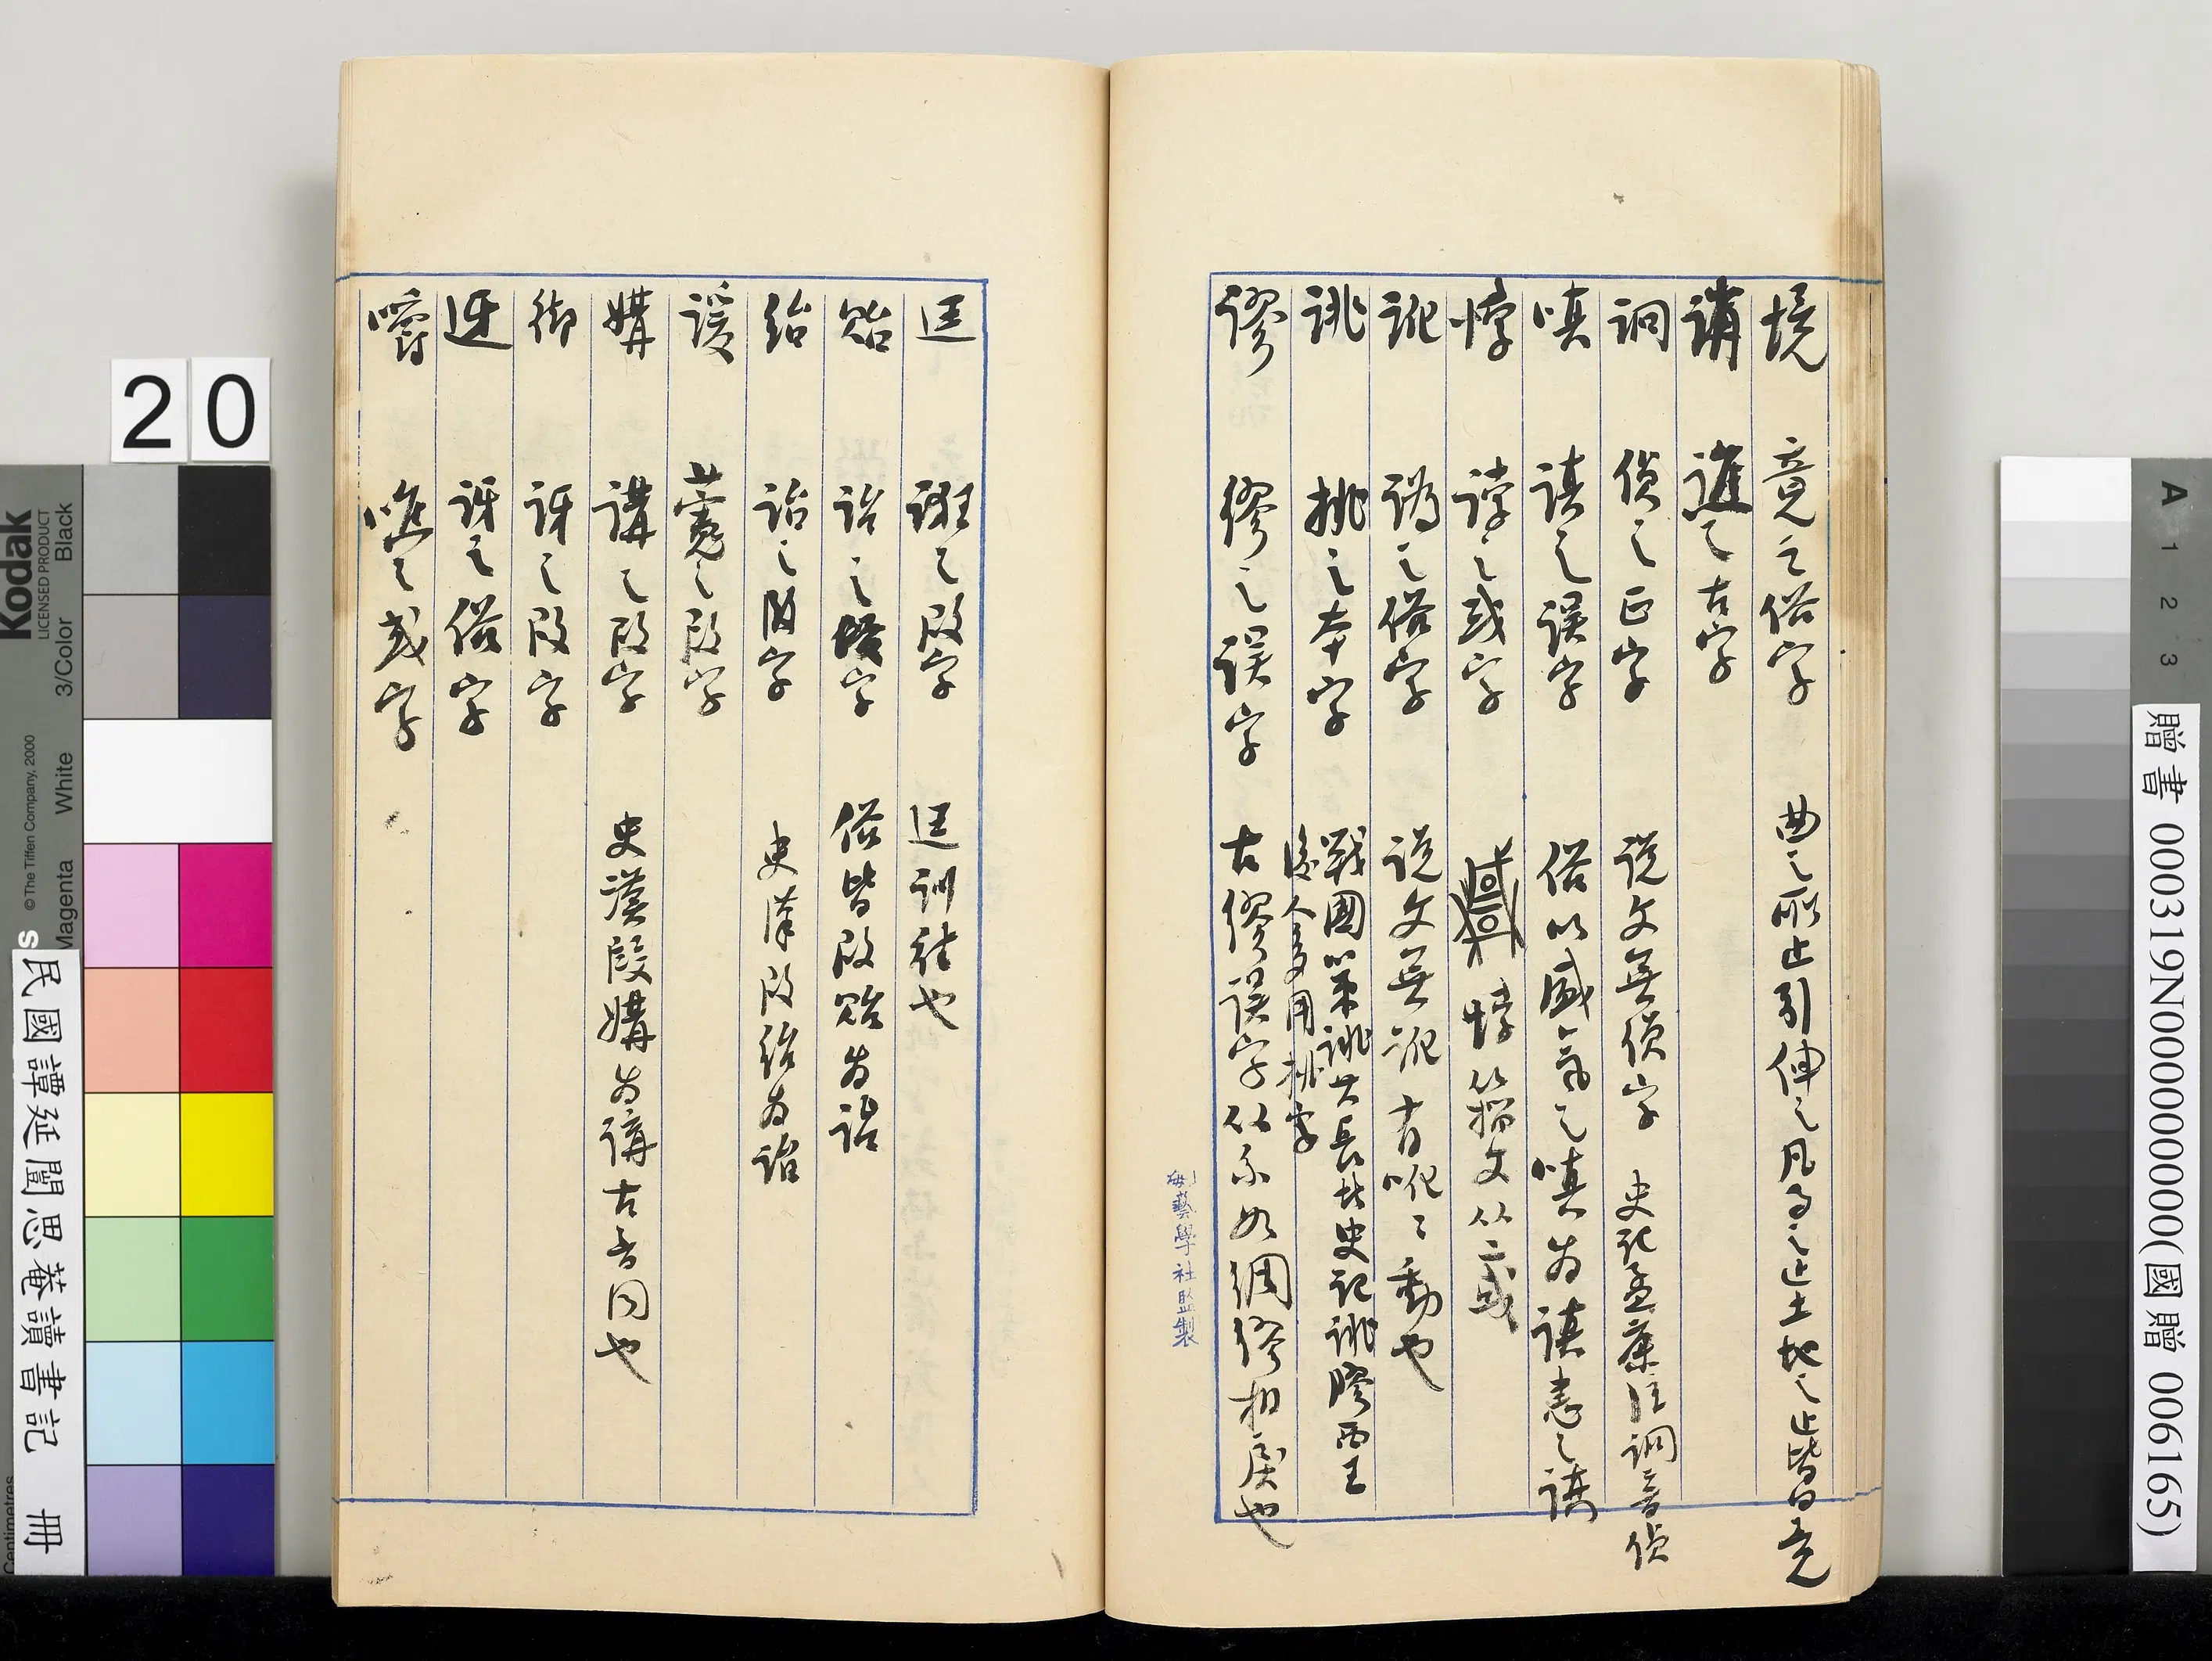 境 竟之俗字 曲之所止引伸之凡事之止土地之止皆曰竟
誚 譙之古字
詗 偵之正字 說文無偵字 史記孟康注詗音偵
嗔 謓之誤字 俗以盛氣之嗔為謓恚之謓
悖 誖之或字 悖籀文从二或
訛 譌之俗字 說文無訛 有吪吪動也
誂 挑之本字 戰國策誂其長者史記誂膠西王
後人多用挑字
謬 繆之誤字 古繆誤字从糸如綢繆相戾也
剛藝學社監製
迋 誑之叚字 迋訓往也
貽 詒之俗字 俗皆叚貽為詒
紿 詒之叚字 史漢叚紿為詒
諼 藼之叚字
媾 講之叚字 史漢叚媾為講古音同也
御 訝之叚字
迓 訝之俗字
嚼 噍之或字
20
Kodak
LICENSED PRODUCT
© The Tiffen Company, 2000
3/Color Black
White
Magenta
Centimetres
民國譚延闓思菴讀書記 冊
A 1 2 3
贈書 000319N000000000000(國贈 006165)